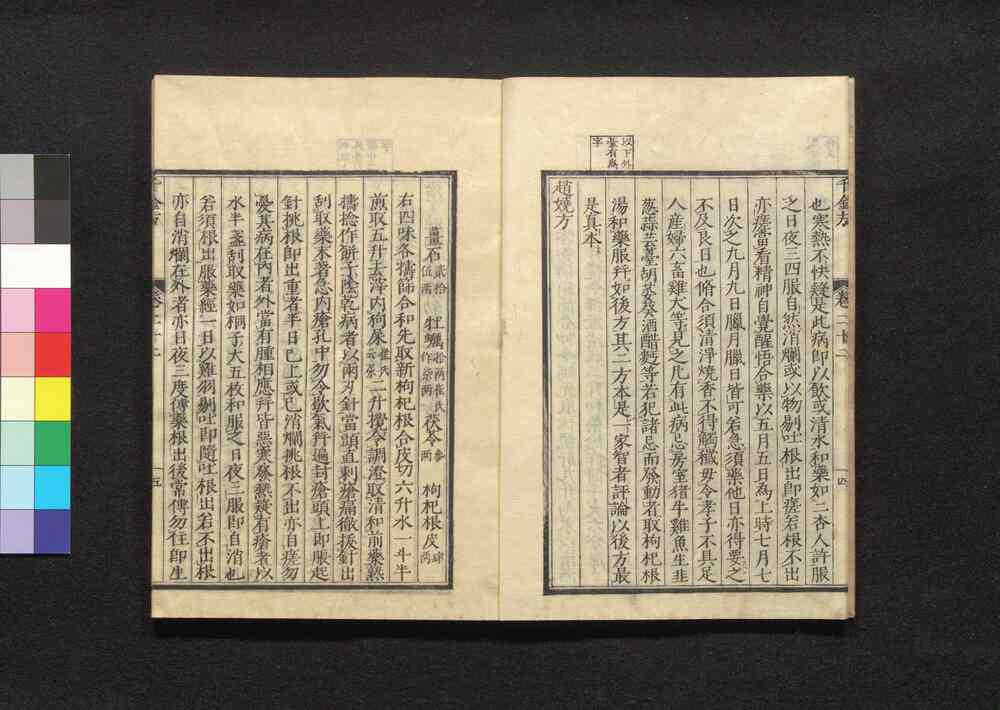 以下外
臺有爲
字
千金方 卷二十二 四
也寒熱不快疑是此病即以飲或清水和藥如二杏人許服
之日夜三四服自然消爛或以物剔吐根出即瘥若根不出
亦瘥當看精神自覺醒悟合藥以五月五日爲上時七月七
日次之九月九日臘月臘日皆可若急須藥他日亦得要之
不及良日也脩合須清淨燒香不得觸穢毋令孝子不具足
人産婦六畜雞犬等見之凡有此病忌房室猪牛雞魚生韭
葱蒜芸臺胡荽癸酒醋麪等若犯諸忌而發動者取枸杞根
湯和藥服并如後方其二方本是一家智者評論以後方最
是真本
趙嬈方
薑石貳拾伍兩 牡蠣拾兩崔氏作柒兩 茯苓參兩 枸杞根皮肆兩
右四味各擣篩合和先取新枸杞根合皮切六升水一斗半
煎取五升去滓内狗屎崔氏云尿二升攪令調澄取清和前藥熟
擣捻作餅子陰乾病者以兩刃針當頭直刺瘡痛徹拔針出
刮取藥末著急内瘡孔中勿令歇氣并遍封瘡頭上即脹起
針挑根即出重者半日已上或已消爛挑根不出亦自瘥勿
憂其病在内者外當有腫相應并皆惡寒發熱疑有瘡者以
水半盞刮取藥如桐子大五枚和服之日夜三服即自消也
若須根出服藥經一日以雞羽剔吐即隨吐根出若不出根
亦自消爛在外者亦日夜三度傅藥根出後常傅勿住即生
千金方 卷二十二 五